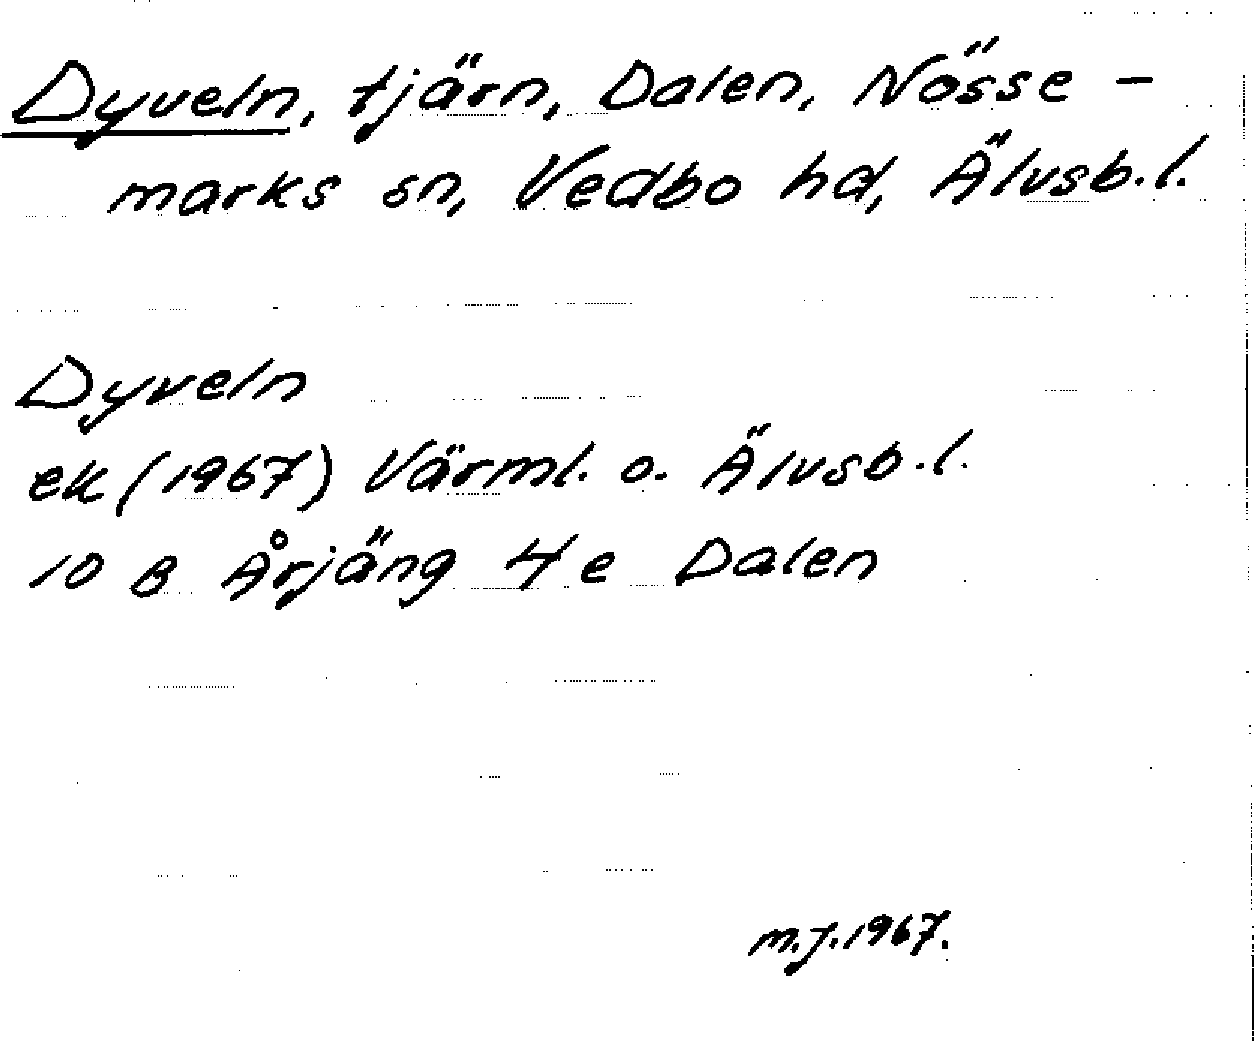 Dyveln, tjärn, Dalen, Nösse-
marks sn, Vedbo hd, Älvsb.l.
Dyveln
ek (1967) Värml. o. Älvsb.l.
10 B Årjäng 4 e Dalen
m.j.1967.